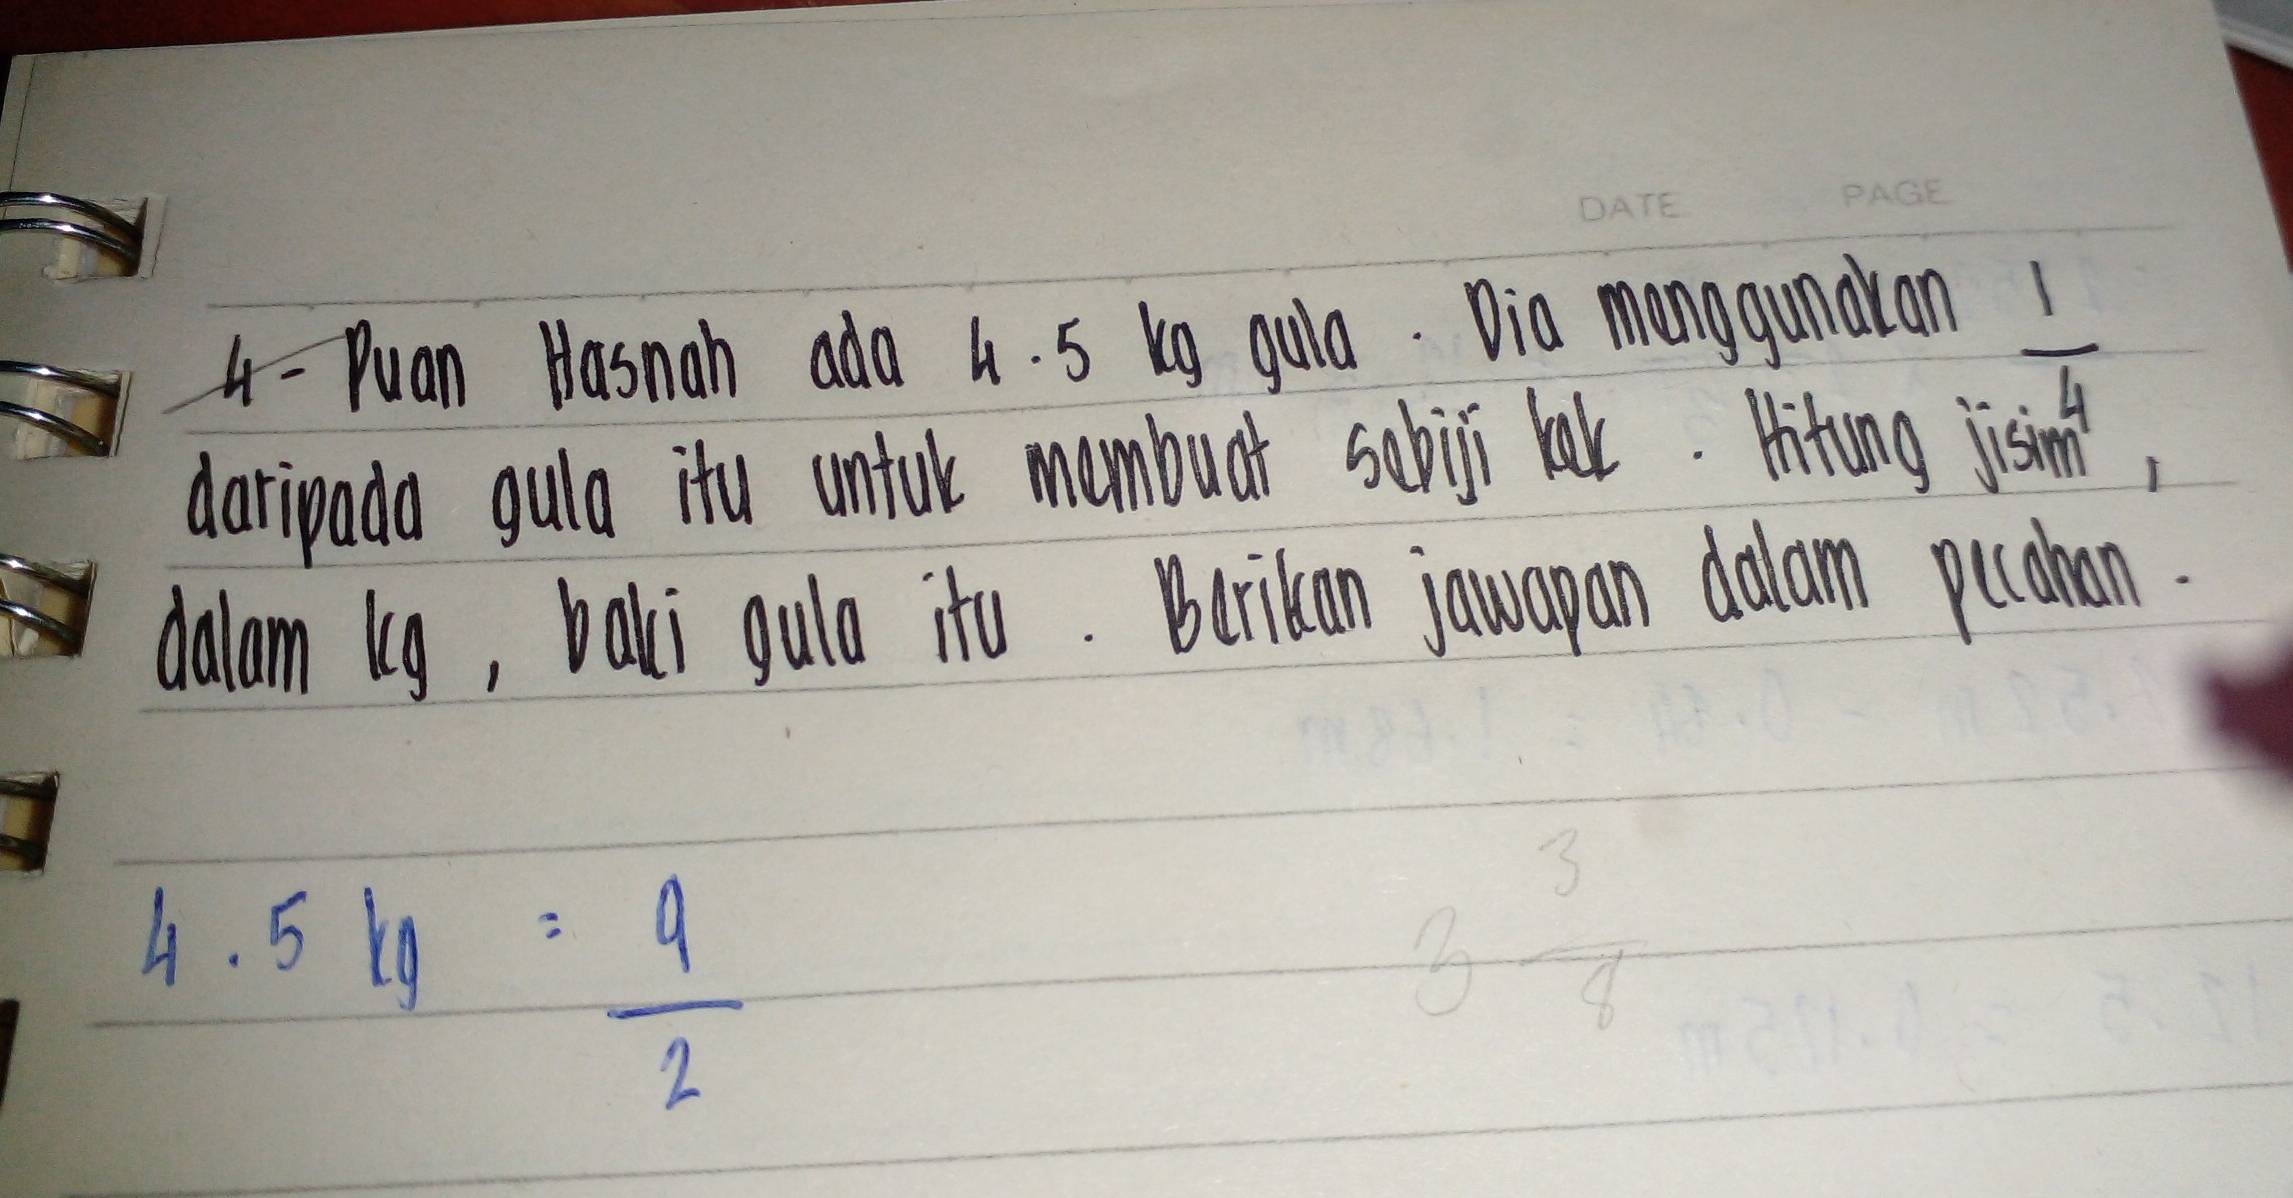 DATE PAGE
4- Puan Hasnah ada 4.5 kg gula. Dia menggunakan 1/4
daripada gula itu untuk membuat sebiji kek. Hitung jisim,
dalam kg, baki gula itu. Berikan jawapan dalam pecahan.
4.5 kg = 9/2
3 3/8